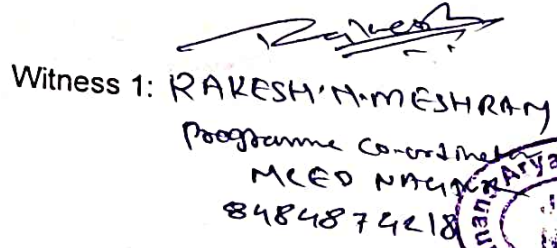 Rakesh
Witness 1: RAKESH.N.MESHRAM
Programme Co-ordinator
MCED NAGPUR
8484874218
Arya